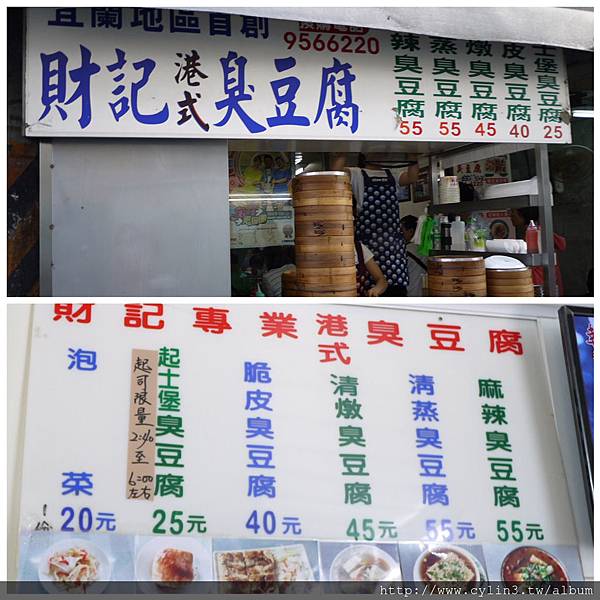 宜蘭地區首創
9566220
財記港式臭豆腐
辣臭豆腐 55
蒸臭豆腐 55
燉臭豆腐 45
皮臭豆腐 40
士堡臭豆腐 25
財記專業港式臭豆腐
泡菜 20元
起士堡臭豆腐 25元
脆皮臭豆腐 40元
清燉臭豆腐 45元
清蒸臭豆腐 55元
麻辣臭豆腐 55元
http://www.cylin3.tw/album